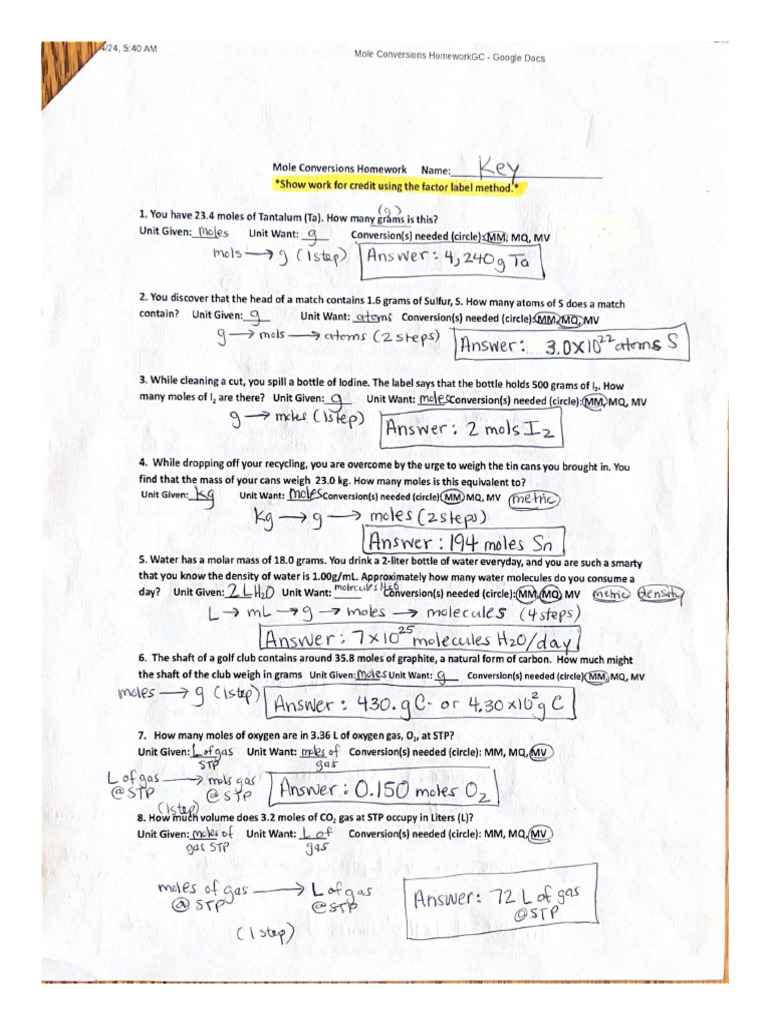 4/24, 5:40 AM
Mole Conversions HomeworkGC - Google Docs
Mole Conversions Homework Name: Key
*Show work for credit using the factor label method.*
(g)
1. You have 23.4 moles of Tantalum (Ta). How many grams is this?
Unit Given: moles Unit Want: g Conversion(s) needed (circle): MM, MQ, MV
mols → g (1step) Answer: 4,240g Ta
2. You discover that the head of a match contains 1.6 grams of Sulfur, S. How many atoms of S does a match
contain? Unit Given: g Unit Want: atoms Conversion(s) needed (circle): MM, MQ, MV
g → mols → atoms (2 steps) Answer: 3.0X10²² atoms S
3. While cleaning a cut, you spill a bottle of Iodine. The label says that the bottle holds 500 grams of I₂. How
many moles of I₂ are there? Unit Given: g Unit Want: moles Conversion(s) needed (circle): MM, MQ, MV
g → moles (1step) Answer: 2 mols I₂
4. While dropping off your recycling, you are overcome by the urge to weigh the tin cans you brought in. You
find that the mass of your cans weigh 23.0 kg. How many moles is this equivalent to?
Unit Given: Kg Unit Want: moles Conversion(s) needed (circle) MM MQ, MV metric
Kg → g → moles (2 steps)
Answer: 194 moles Sn
5. Water has a molar mass of 18.0 grams. You drink a 2-liter bottle of water everyday, and you are such a smarty
that you know the density of water is 1.00g/mL. Approximately how many water molecules do you consume a
day? Unit Given: 2 L H₂O Unit Want: molecules H₂O Conversion(s) needed (circle): MM, MQ, MV metric density
L → mL → g → moles → molecules (4 steps)
Answer: 7×10²⁵ molecules H₂O/day
6. The shaft of a golf club contains around 35.8 moles of graphite, a natural form of carbon. How much might
the shaft of the club weigh in grams Unit Given: moles Unit Want: g Conversion(s) needed (circle) MM, MQ, MV
moles → g (1step) Answer: 430. g C or 4.30×10² g C
7. How many moles of oxygen are in 3.36 L of oxygen gas, O₂, at STP?
Unit Given: L of gas STP Unit Want: moles of gas Conversion(s) needed (circle): MM, MQ, MV
L of gas @ STP → mols gas @ STP Answer: 0.150 moles O₂
(1step)
8. How much volume does 3.2 moles of CO₂ gas at STP occupy in Liters (L)?
Unit Given: moles of gas STP Unit Want: L of gas Conversion(s) needed (circle): MM, MQ, MV
moles of gas @ STP → L of gas @STP Answer: 72 L of gas @STP
(1 step)